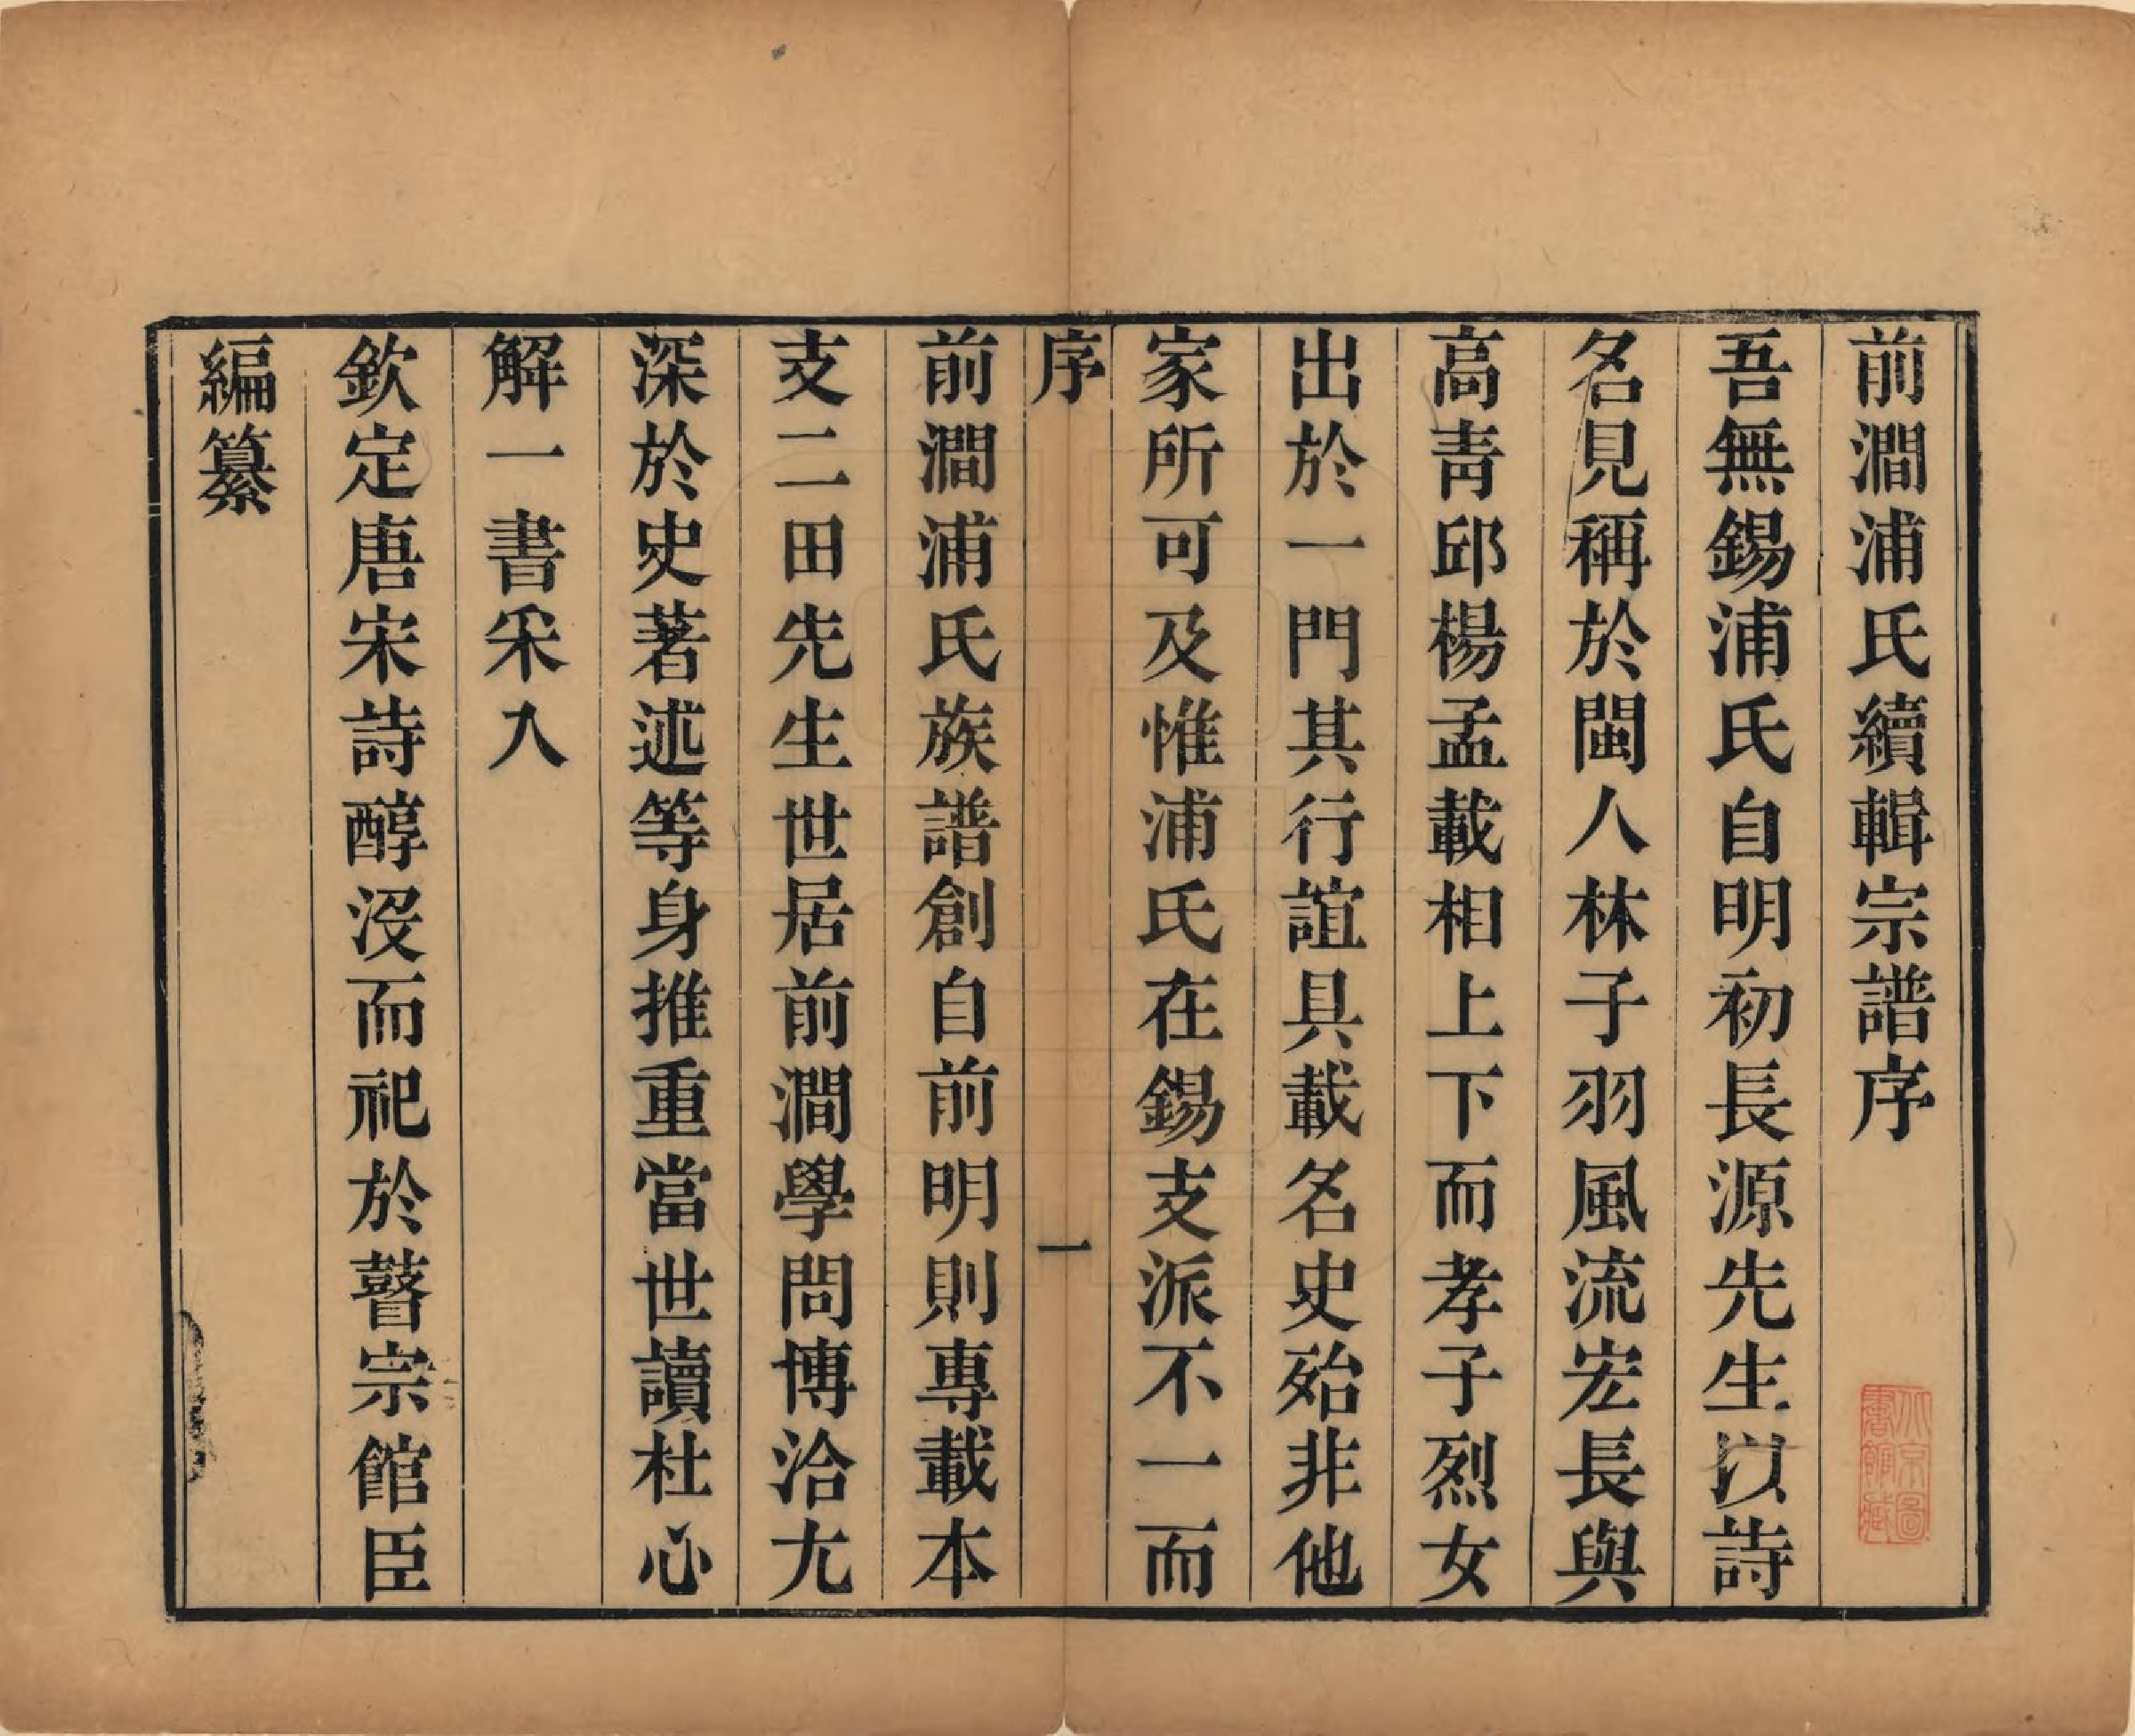 前澗浦氏續輯宗譜序
吾無錫浦氏自明初長源先生以詩
名見稱於閩人林子羽風流宏長與
高靑邱楊孟載相上下而孝子烈女
出於一門其行誼具載名史殆非他
家所可及惟浦氏在錫支派不一而
序
一
前澗浦氏族譜創自前明則專載本
支二田先生世居前澗學問博洽尤
深於史著述等身推重當世讀杜心
解一書采入
欽定唐宋詩醇沒而祀於瞽宗館臣
編纂
北京圖
書館藏